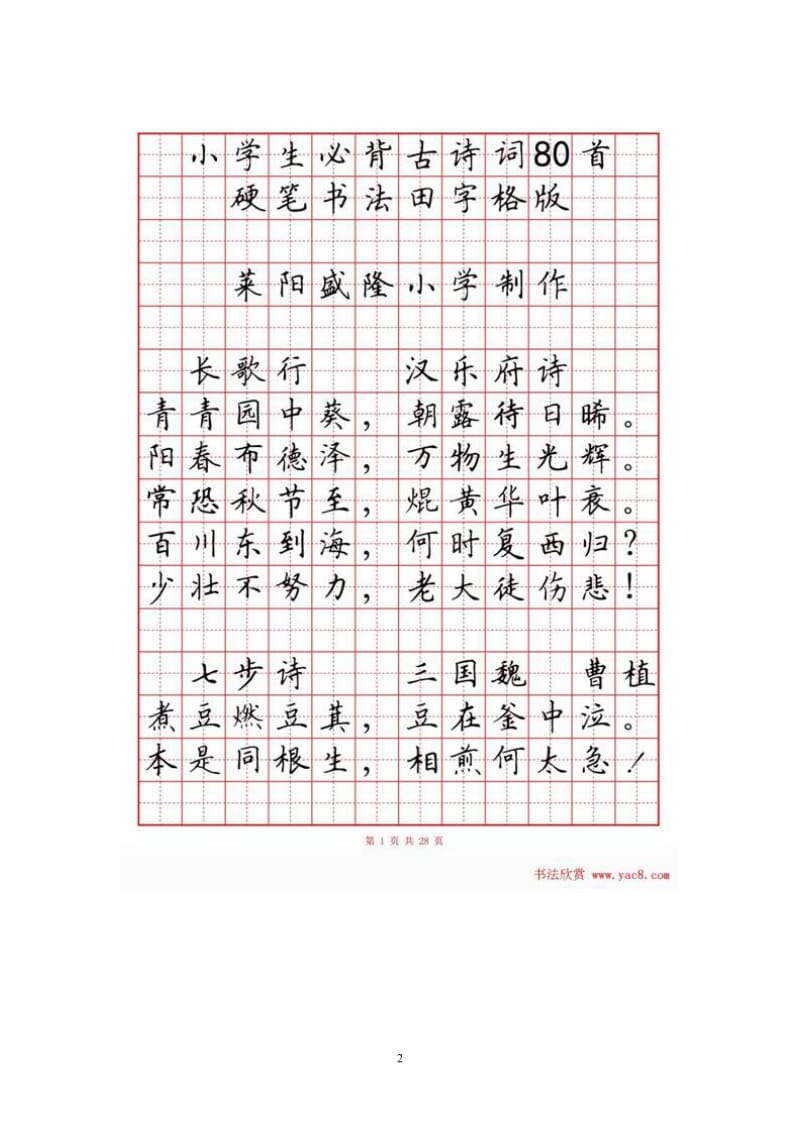 小学生必背古诗词80首
硬笔书法田字格版
莱阳盛隆小学制作
长歌行 汉乐府诗
青青园中葵，朝露待日晞。
阳春布德泽，万物生光辉。
常恐秋节至，焜黄华叶衰。
百川东到海，何时复西归？
少壮不努力，老大徒伤悲！
七步诗 三国魏 曹植
煮豆燃豆萁，豆在釜中泣。
本是同根生，相煎何太急！
第 1 页 共 28 页
书法欣赏 www.yac8.com
2